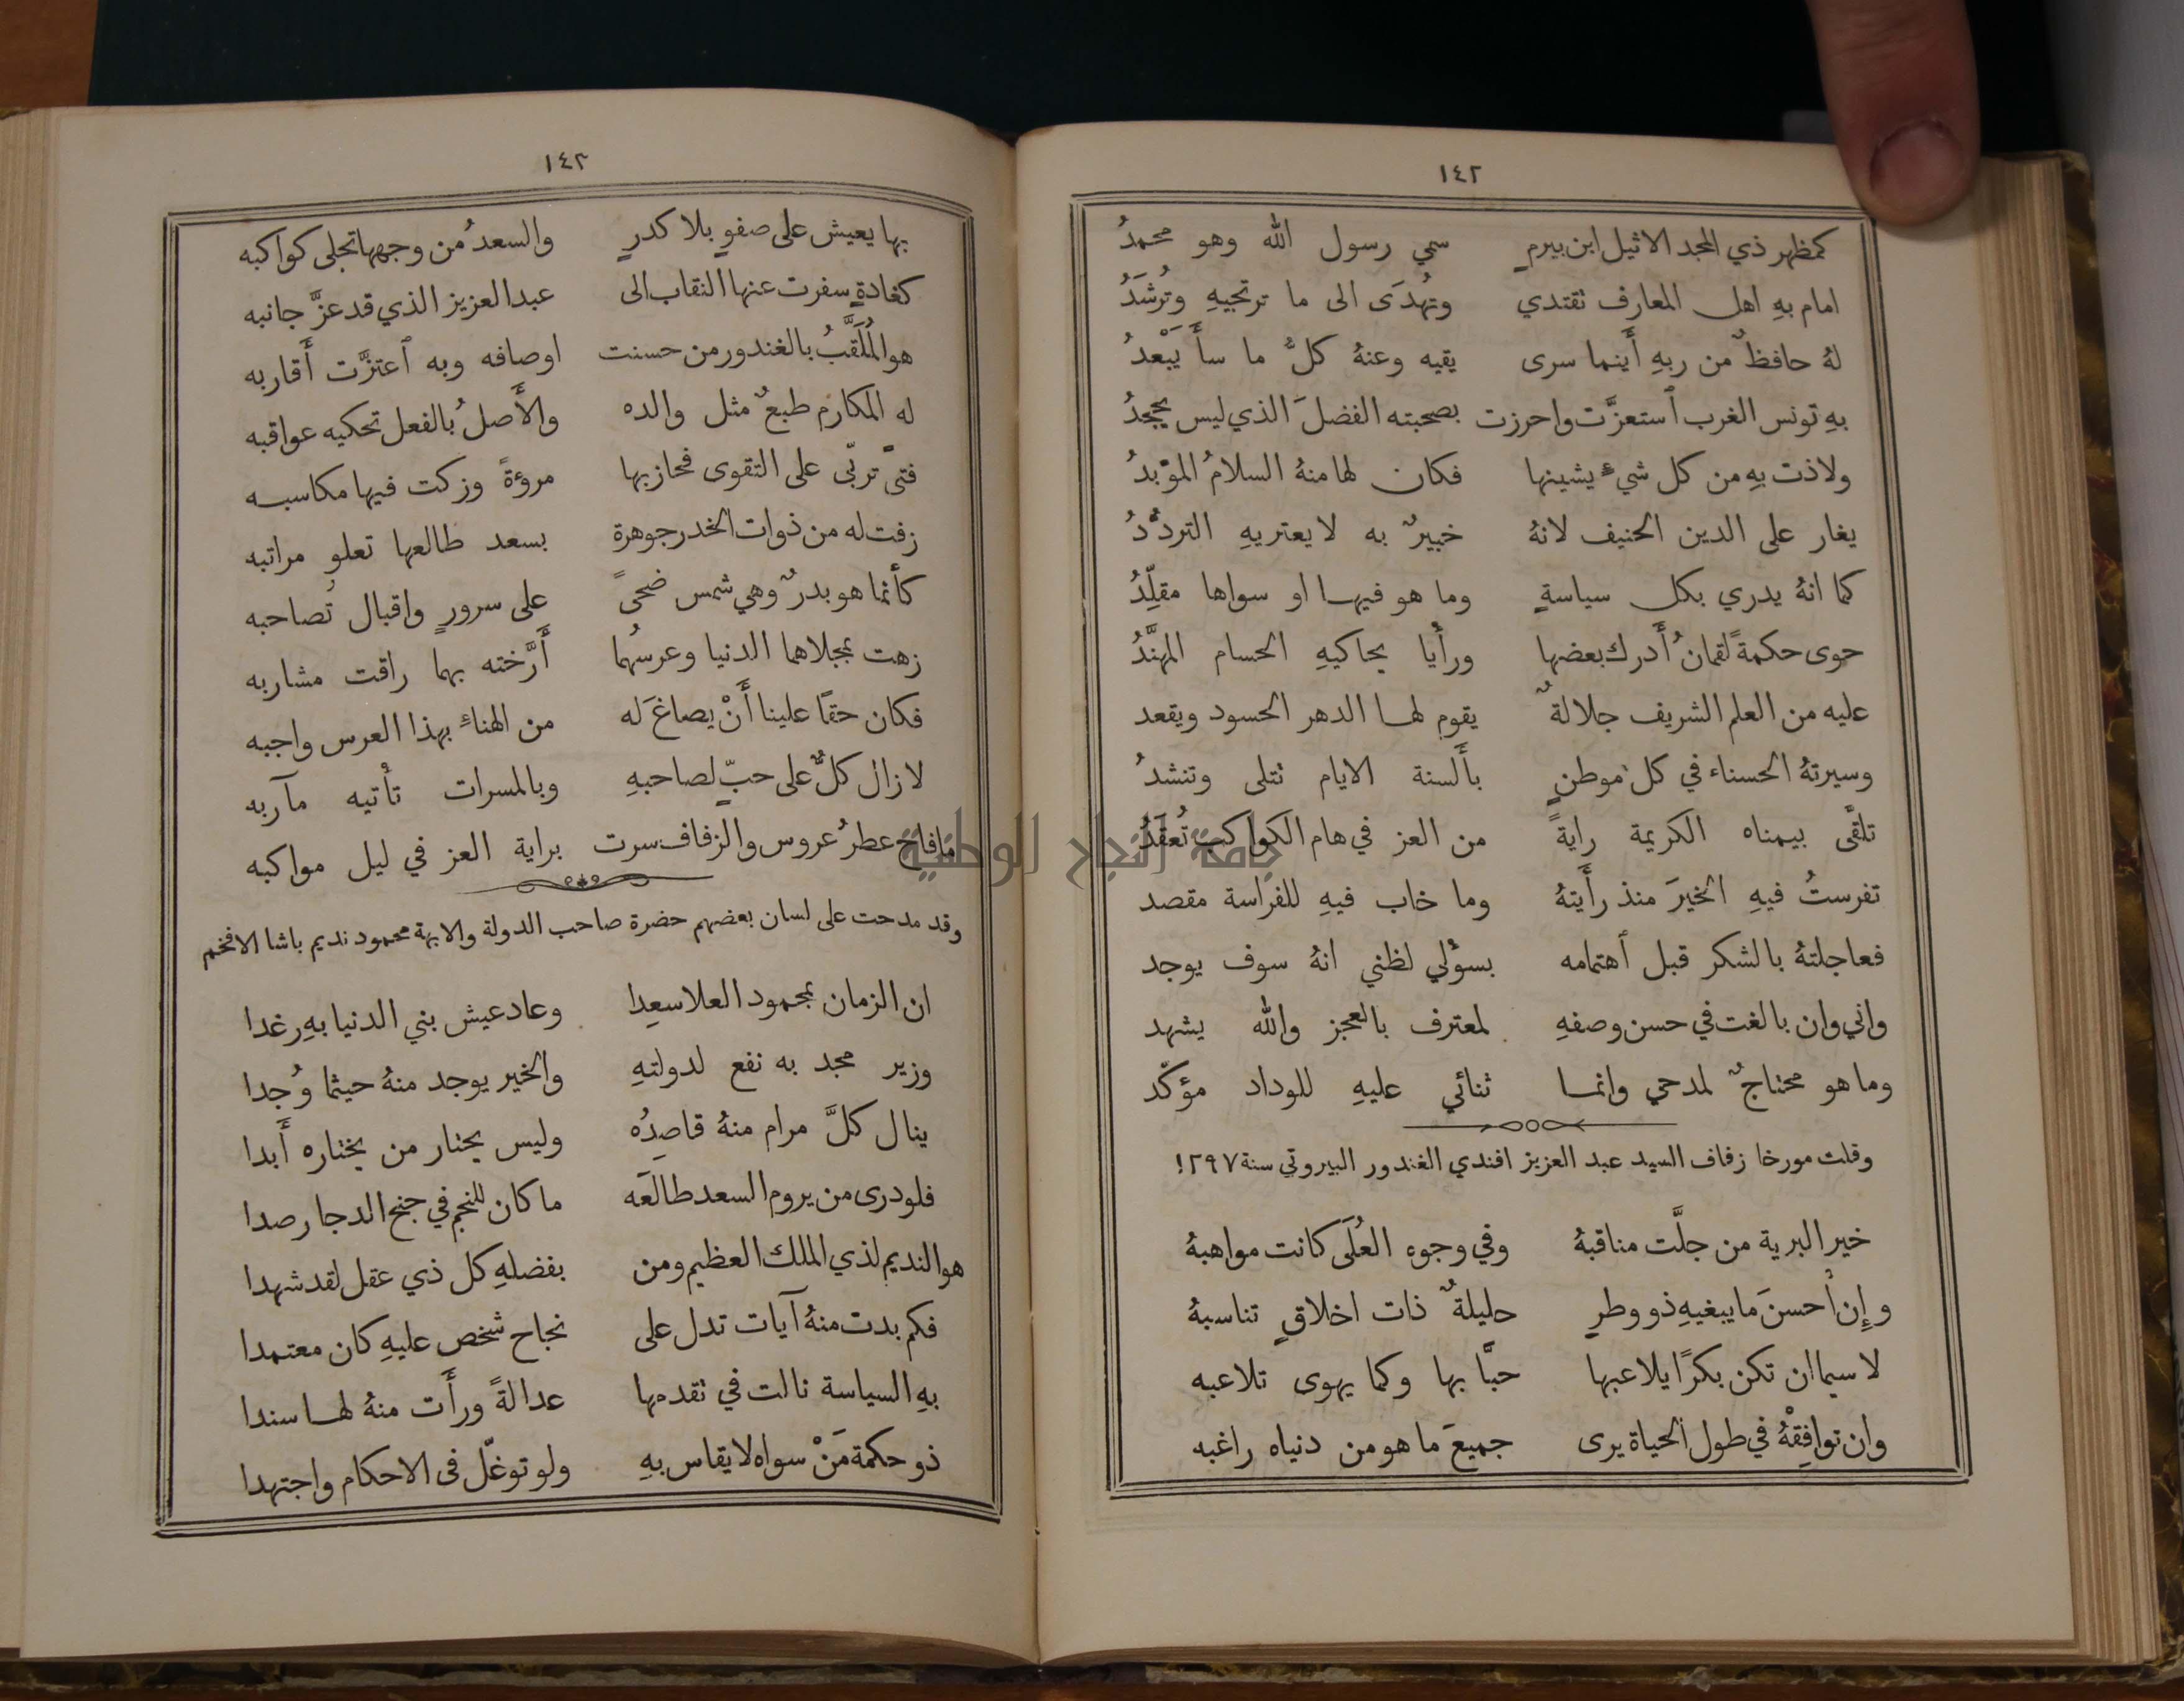 ١٤٢
كمظهر ذي المجد الاثيل ابن بيرمٍ سمي رسول الله وهو محمدُ
امام بهِ اهل المعارف تقتدي وتُهدَى الى ما ترتجيهِ وتُرشَدُ
لهُ حافظٌ من ربهِ أَينما سرى يقيه وعنهُ كلُّ ما سأَ يَبْعدُ
بهِ تونس الغرب ٱستعزَّت واحرزت بصحبته الفضلَ الذي ليس يجحدُ
ولاذت بهِ من كل شيءٍ يشينها فكان لها منهُ السلامُ المؤبدُ
يغار على الدين الحنيف لانهُ خبيرٌ به لا يعتريهِ التردُّدُ
كما انهُ يدري بكل سياسةٍ وما هو فيها او سواها مقلِّدُ
حوى حكمةً لقمانُ أَدرك بعضها ورأْيا يحاكيهِ الحسام المهنَّدُ
عليه من العلم الشريف جلالةٌ يقوم لها الدهر الحسود ويقعد
وسيرتهُ الحسناء في كل موطنٍ بأَلسنة الايام تتلى وتنشدُ
تلقَّى بيمناه الكريمة رايةً من العز في هام الكواكب تُعقَدُ
تفرستُ فيهِ الخيرَ منذ رأَيتهُ وما خاب فيهِ للفراسة مقصد
فعاجلتهُ بالشكر قبل ٱهتمامه بسؤْلي لظني انهُ سوف يوجد
واني وان بالغت في حسن وصفهِ لمعترف بالعجز والله يشهد
وما هو محتاجٌ لمدحي وانما ثنائي عليهِ للوداد مؤكّد
وقلت مورخا زفاف السيد عبد العزيز افندي الغندور البيروتي سنة ١٢٩٧
خير البرية من جلَّت مناقبهُ وفي وجوه العُلَى كانت مواهبهُ
وإِن أَحسنَ ما يبغيهِ ذو وطرٍ حليلةٌ ذات اخلاقٍ تناسبهُ
لا سيما ان تكن بكرًا يلاعبها حبًّا بها وكما يهوى تلاعبه
وان توافِقْهُ في طول الحياة يرى جميعَ ما هو من دنياه راغبه
١٤٣
بها يعيش على صفوٍ بلا كدرٍ والسعدُ من وجهها تجلى كواكبه
كغادةٍ سفرت عنها النقاب الى عبد العزيز الذي قد عزَّ جانبه
هو المُلَقَّبُ بالغندور من حسنت اوصافه وبه ٱعتزَّت أَقاربه
له المكارم طبعٌ مثل والده والأَصلُ بالفعل تحكيه عواقبه
فتىً تربّى على التقوى فحاز بها مروءةً وزكت فيها مكاسبه
زفت له من ذوات الخدر جوهرة بسعد طالعها تعلو مراتبه
كأنما هو بدرٌ وهي شمس ضحىً على سرورٍ واقبال تُصاحبه
زهت بمجلاهما الدنيا وعرسُهما أَرَّخته بهما راقت مشاربه
فكان حقًا علينا أَنْ يصاغَ له من الهناءِ بهذا العرس واجبه
لا زال كلٌّ على حبٍّ لصاحبهِ وبالمسرات تأتيه مآربه
ما فاح عطرُ عروس والزفاف سرت براية العز في ليل مواكبه
وقد مدحت على لسان بعضهم حضرة صاحب الدولة والابهة محمود نديم باشا الافخم
ان الزمان بمحمود العلا سعِدا وعاد عيش بني الدنيا بهِ رغدا
وزير مجد به نفع لدولتهِ والخير يوجد منهُ حيثما وُجدا
ينال كلَّ مرام منهُ قاصِدُه وليس يحتار من يختاره أَبدا
فلو درى من يروم السعد طالعَه ما كان للنجم في جنح الدجا رصدا
هو النديم لذي الملك العظيم ومن بفضلهِ كل ذي عقل لقد شهدا
فكم بدت منهُ آيات تدل على نجاح شخص عليهِ كان معتمدا
بهِ السياسة نالت في تقدمها عدالةً ورأَت منهُ لها سندا
ذو حكمة مَنْ سواه لا يقاس بهِ ولو توغّل فى الاحكام واجتهدا
جامعة النجاح الوطنية